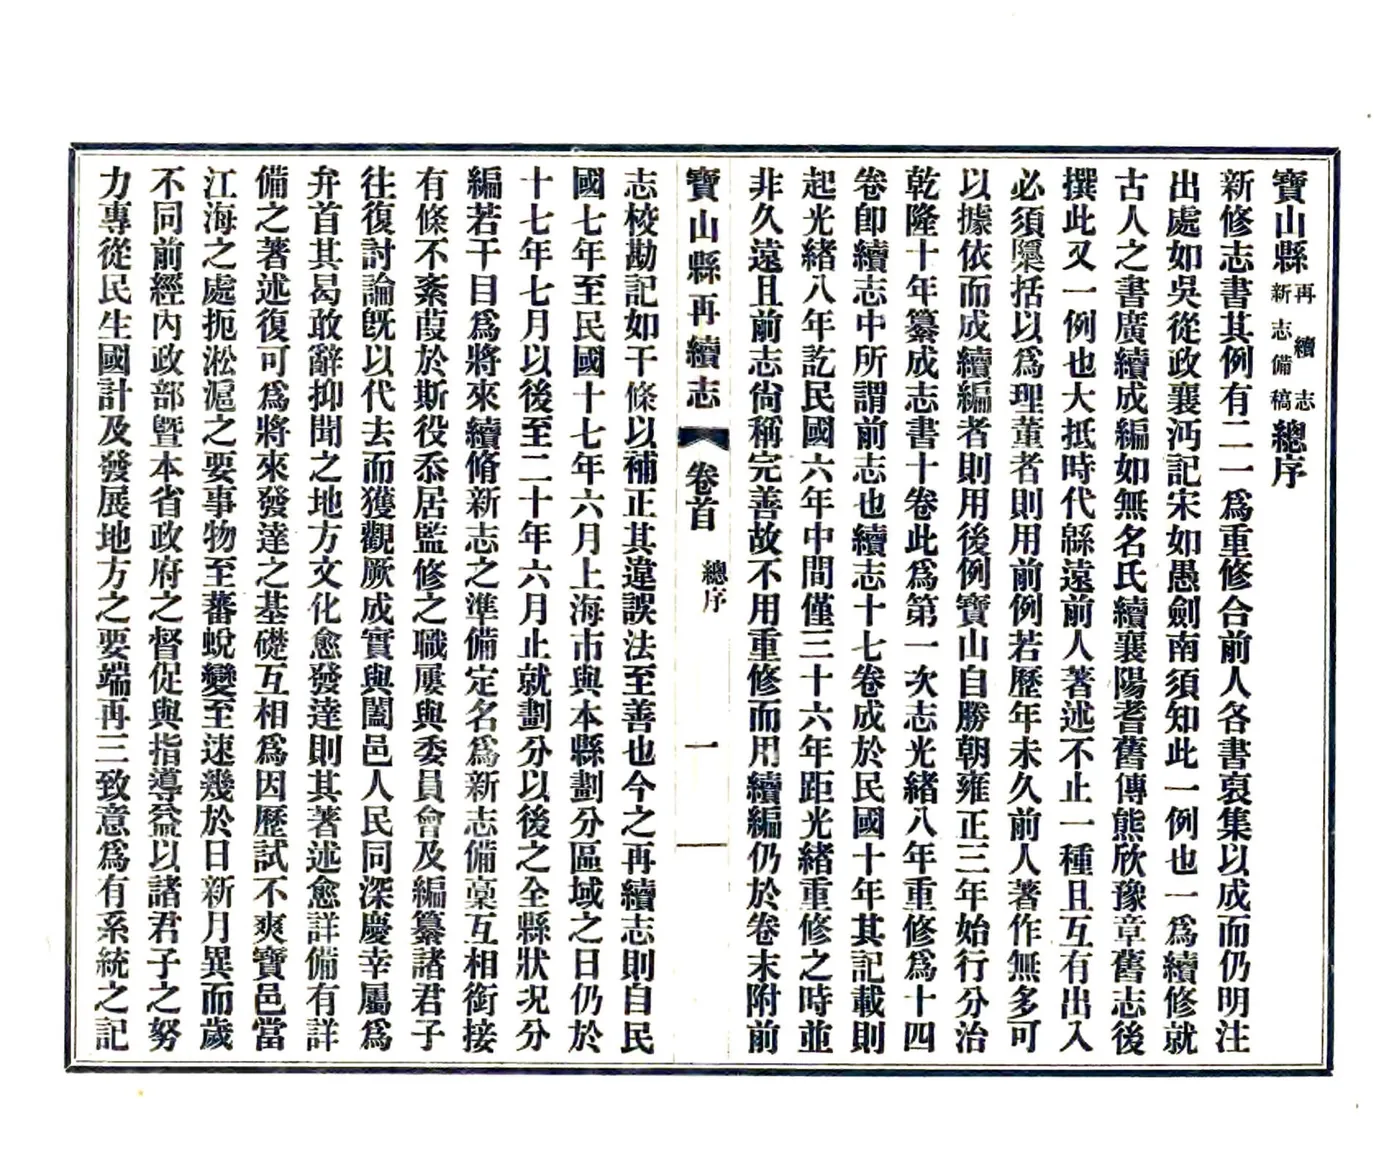 寶山縣再續志新志備稿總序
新修志書其例有二一爲重修合前人各書裒集以成而仍明注
出處如吳從政襄沔記宋如愚劍南須知此一例也一爲續修就
古人之書廣續成編如無名氏續襄陽耆舊傳熊欣豫章舊志後
撰此又一例也大抵時代緜遠前人著述不止一種且互有出入
必須隱括以爲理董者則用前例若歷年未久前人著作無多可
以據依而成續編者則用後例寶山自勝朝雍正三年始行分治
乾隆十年纂成志書十卷此爲第一次志光緒八年重修爲十四
卷卽續志中所謂前志也續志十七卷成於民國十年其記載則
起光緒八年訖民國六年中間僅三十六年距光緒重修之時並
非久遠且前志尙稱完善故不用重修而用續編仍於卷末附前
寶山縣再續志 卷首 總序 一
志校勘記如干條以補正其違誤法至善也今之再續志則自民
國七年至民國十七年六月上海市與本縣劃分區域之日仍於
十七年七月以後至二十年六月止就劃分以後之全縣狀況分
編若干目爲將來續脩新志之準備定名爲新志備稾互相銜接
有條不紊葭於斯役忝居監修之職屢與委員會及編纂諸君子
往復討論旣以代去而獲觀厥成實與闔邑人民同深慶幸屬爲
弁首其曷敢辭抑聞之地方文化愈發達則其著述愈詳備有詳
備之著述復可爲將來發達之基礎互相爲因歷試不爽寶邑當
江海之處扼淞滬之要事物至蕃蛻變至速幾於日新月異而歲
不同前經內政部曁本省政府之督促與指導益以諸君子之努
力專從民生國計及發展地方之要端再三致意爲有系統之記